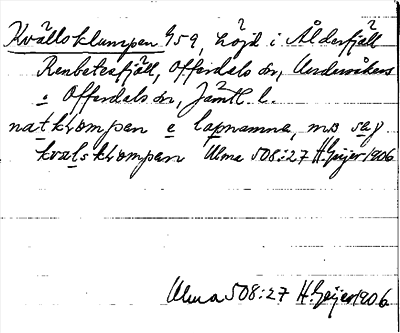 Kvällsklumpen 959, höjd i Ålderfjäll
Renbetesfjäll, Offerdals sn, Undersåkers
o Offerdals sn, Jämtl. l.
natkrompen e lapnamna, mɷ sag
kvalskrompen Ulma 508:27 H. Geijer 1906
Ulma 508:27 H. Geijer 1906